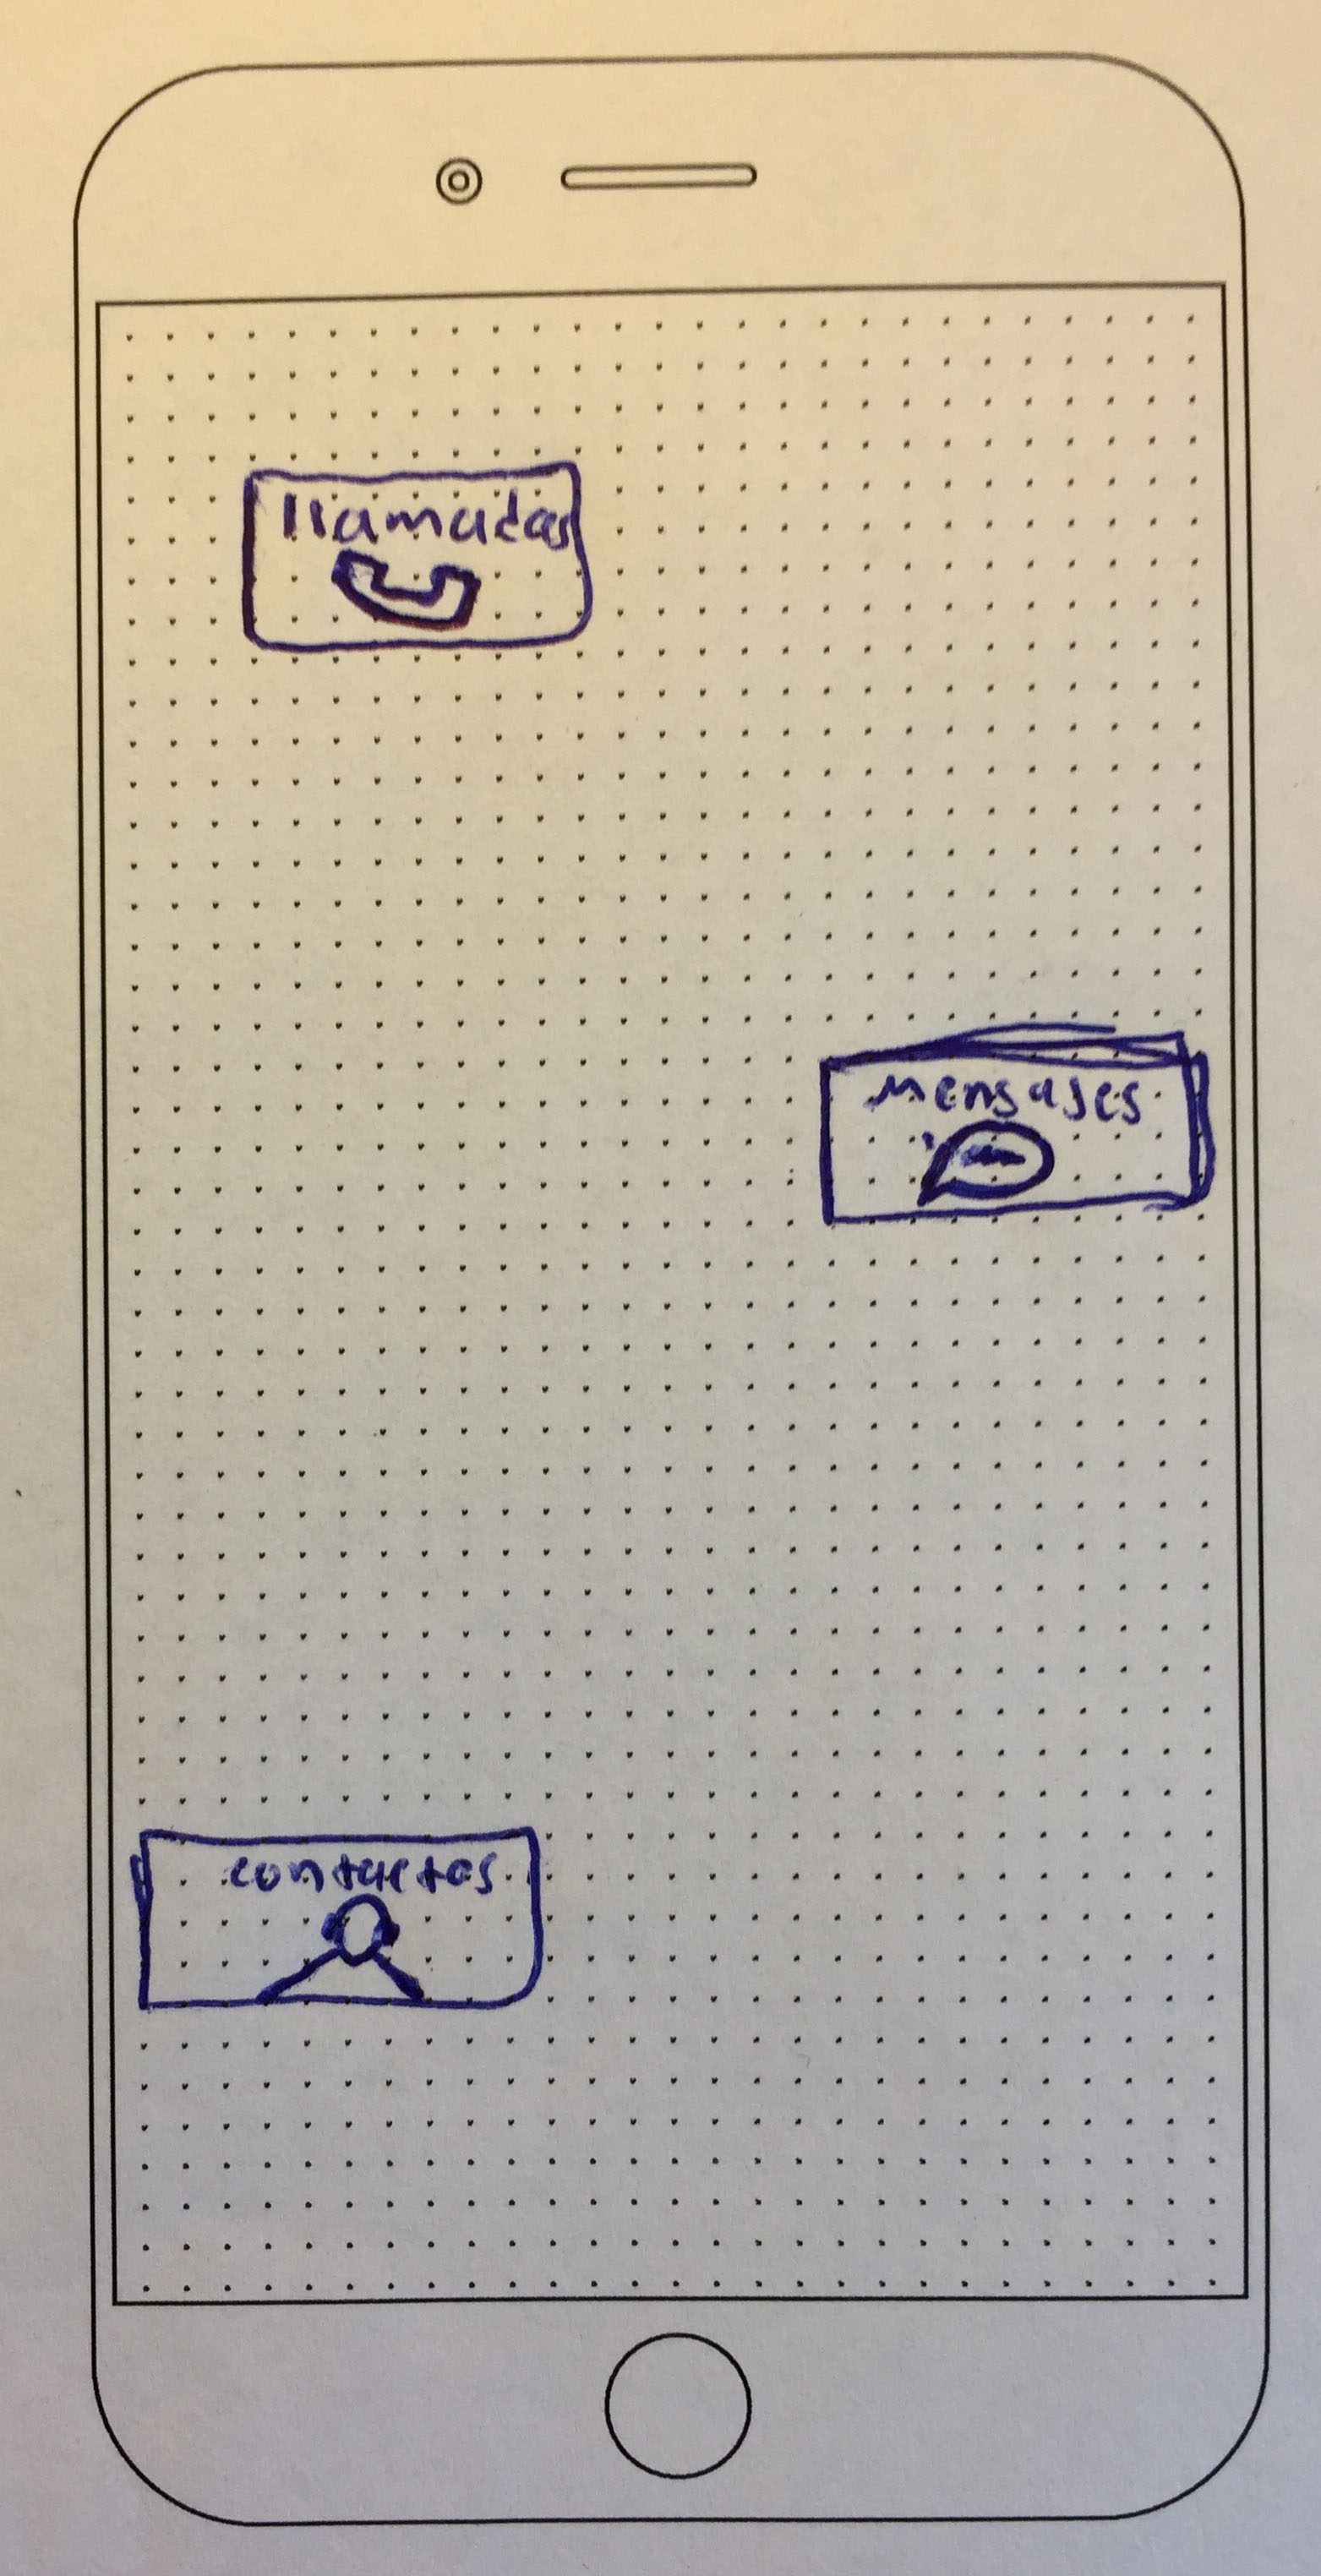 llamadas
mensajes
contactos